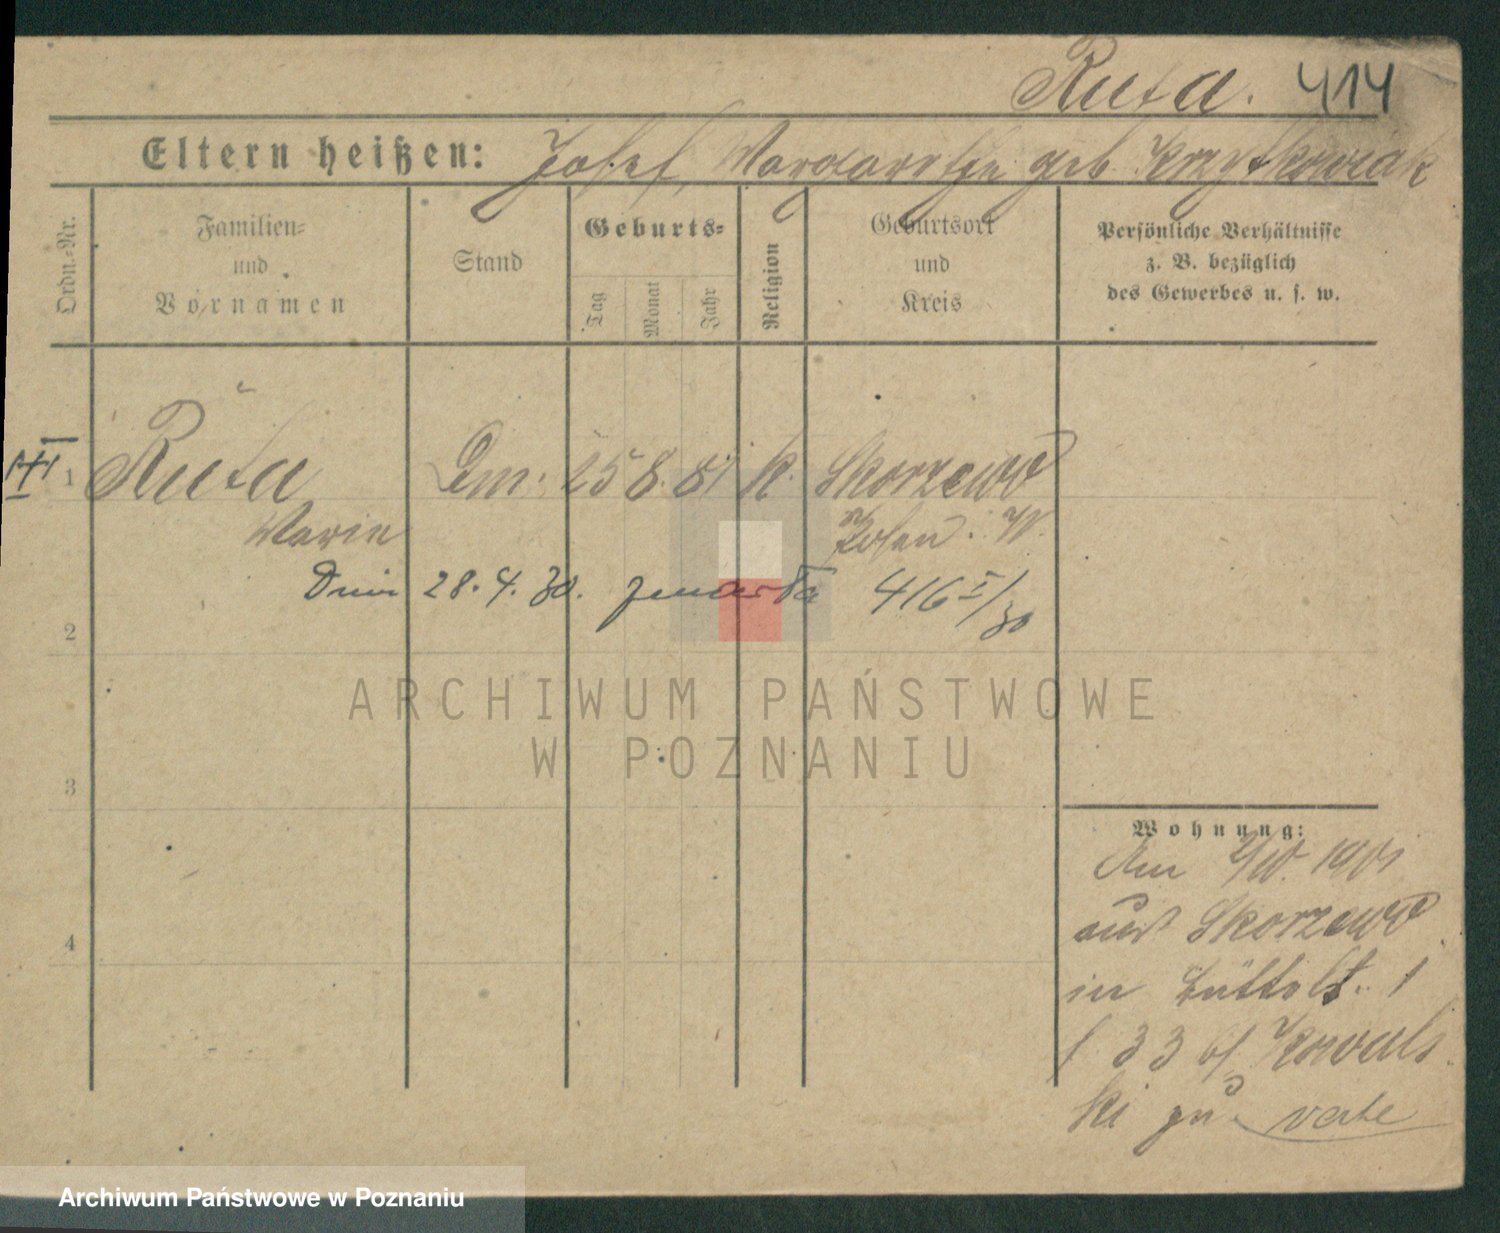 Ruta. 414
Eltern heißen: Josef, Margarethe geb. Krzyżkowiak
Ordn.-Nr.
Familien-
und
Vornamen
Stand
Geburts-
Tag
Monat
Jahr
Religion
Geburtsort
und
Kreis
Persönliche Verhältnisse
z. B. bezüglich
des Gewerbes u. s. w.
1 Ruta Dm. 25 8. 81 k. Skorzewo
Marie Posen. W.
Dnia 28. 4. 30. zmarła 416 I/30
2
3
4
ARCHIWUM PAŃSTWOWE
W POZNANIU
Wohnung:
Am 1901
aus Skorzewo
in 1
33 b/ Kowals
ki zu. verte
Archiwum Państwowe w Poznaniu